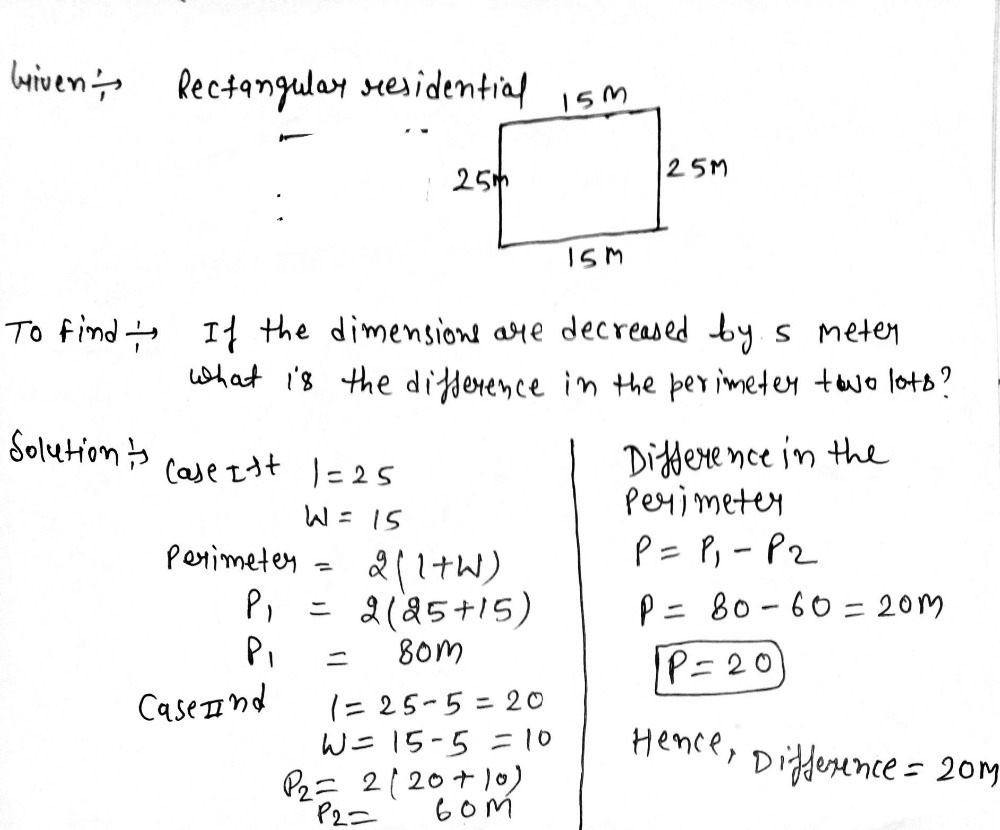 Given ÷→ Rectangular residential
15 M
25m
25M
15 M
To find ÷→ If the dimensions are decreased by 5 meter
what is the difference in the perimeter two lots?
Solution ÷→
Case Ist l = 25
W = 15
Perimeter = 2(l+W)
P₁ = 2(25+15)
P₁ = 80M
Case IInd l = 25-5 = 20
W = 15-5 = 10
P₂ = 2(20+10)
P₂ = 60M
Difference in the
Perimeter
P = P₁ - P2
P = 80 - 60 = 20M
P = 20
Hence, Difference = 20M